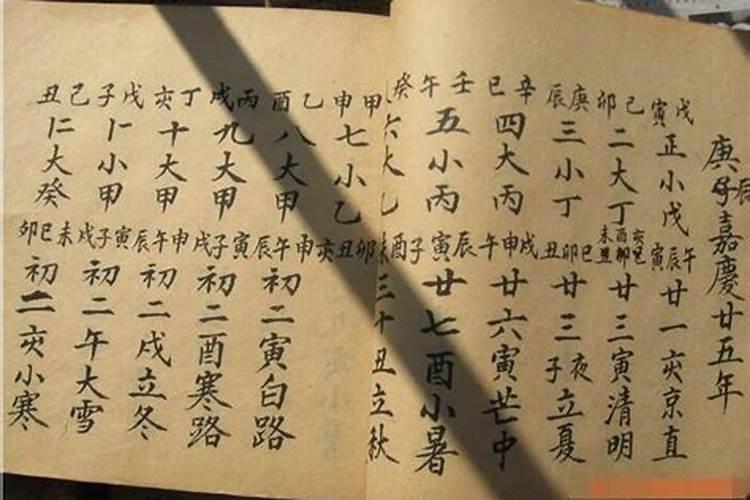 庚子辰嘉慶廿五年
戊寅正小戊午辰寅廿一亥京直
己卯二大丁亥酉未巳卯丑廿三寅清明
庚辰三小丁巳卯丑廿三夜子立夏
辛巳四大丙戌申午廿六寅芒中
壬午五小丙辰寅子廿七酉小暑
癸六大乙酉未三十丑立秋
甲申七小乙卯丑亥
乙酉八大甲申午辰初二寅白路
丙戌九大甲寅子戌初二酉寒路
丁亥十大甲申午辰初二戌立冬
戊子十一小甲寅子戌初二午大雪
己丑十二大癸未巳卯初二亥小寒